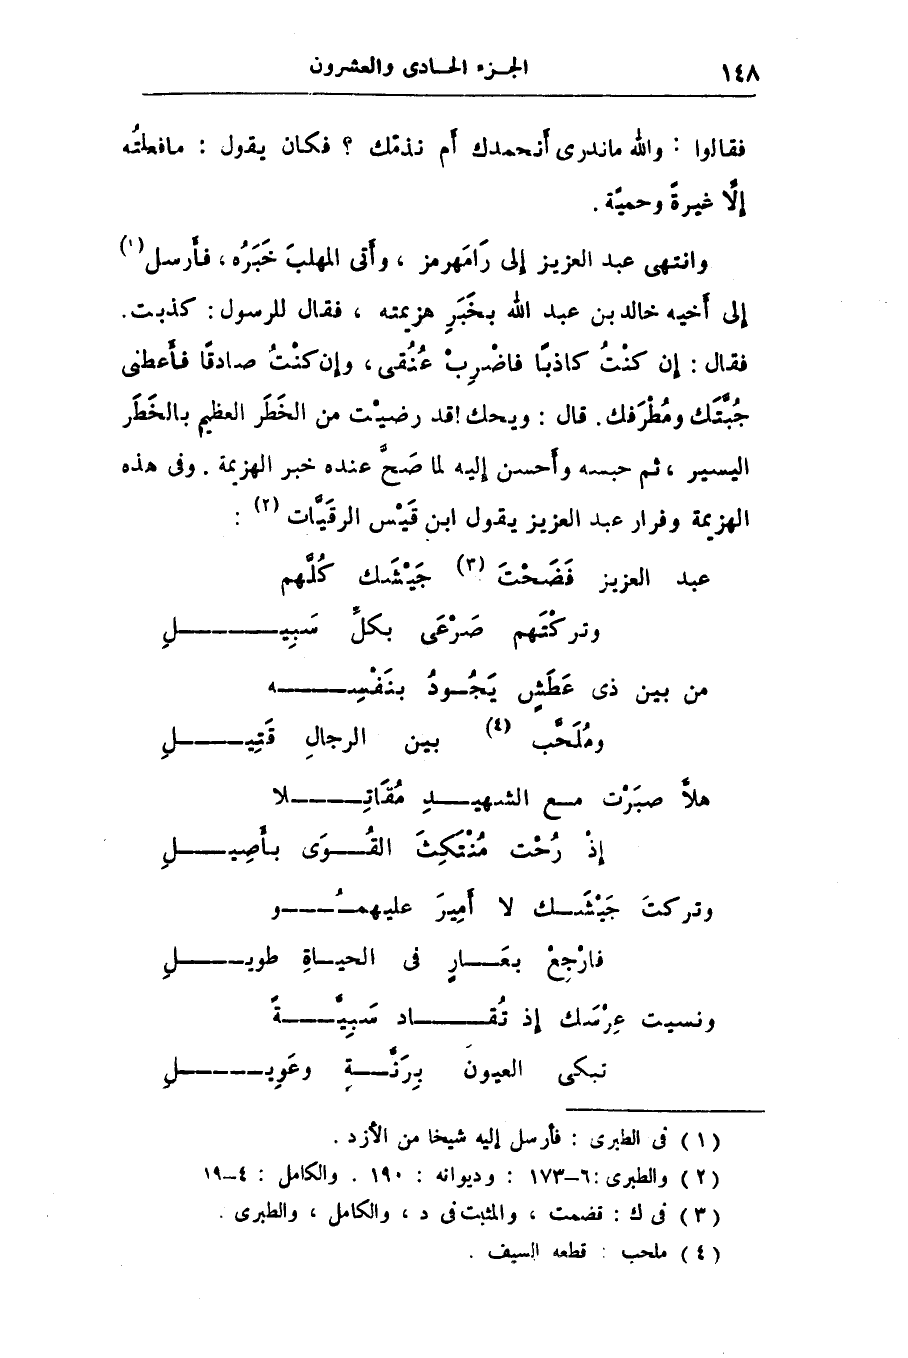 ١٤٨ الجزء الحادى والعشرون
فقالوا : والله ماندرى أنحمدك أم نذمّك ؟ فكان يقول : مافعلتُه
إلَّا غيرةً وحميَّة .
وانتهى عبد العزيز إلى رَامَهرمز ، وأتى المهلبَ خَبَرُه ، فأرسل (١)
إلى أخيه خالد بن عبد الله بخَبَرِ هزيمته ، فقال للرسول : كذبت .
فقال : إن كنْتُ كاذبًا فاضْرِبْ عُنُقى ، وإن كنْتُ صادقًا فأعطنى
جُبَّتَك ومُطْرَفك . قال : ويحك ! قد رضيْت من الخَطَر العظيم بالخَطَر
اليسير ، ثم حبسه وأحسن إليه لما صَحَّ عنده خبر الهزيمة . وفى هذه
الهزيمة وفرار عبد العزيز يقول ابن قَيْس الرقَيَّات (٢) :
عبد العزيز فَضَحْتَ (٣) جَيْشَك كُلَّهم
وتركْتَهم صَرْعَى بكلِّ سَبِيـــــــلِ
من بين ذى عَطَشٍ يَجُـودُ بنَفْسِـــــه
ومُلَحَّب (٤) بين الرجالِ قَتِيـــــلِ
هلاَّ صبَرْت مـع الشهيــدِ مُقَاتِـــــلا
إذْ رُحْت مُنْتَكِثَ القُـــوَى بأَصِيــــلِ
وتركتَ جَيْشَــك لا أَمِيرَ عليهمـُـــو
فارْجِعْ بعَـــارٍ فى الحيــاةِ طويــــلِ
ونسيت عِرْسَك إذ تُقَــــاد سَبِيَّـــــةً
تبكى العيونَ بِرَنَّـــةٍ وعَوِيـــــلِ
(١) فى الطبرى : فأرسل إليه شيخا من الأزد .
(٢) والطبرى : ٦–١٧٣ : وديوانه : ١٩٠ . والكامل : ٤–١٩
(٣) فى ك : قضمت ، والمثبت فى د ، والكامل ، والطبرى .
(٤) ملحب : قطعه السيف .